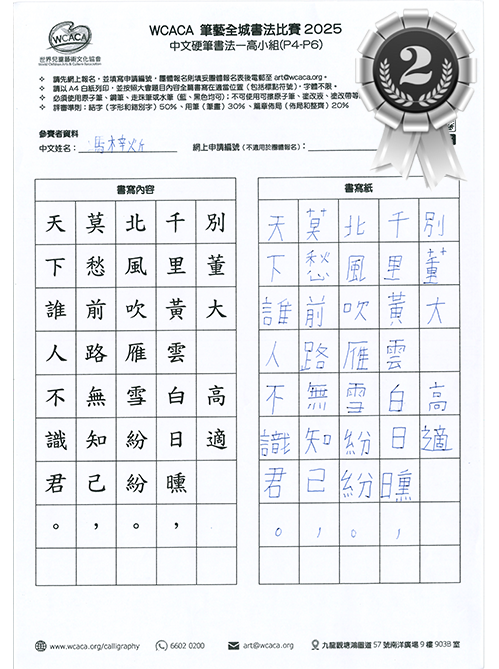 WCACA
世界兒童藝術文化協會
World Children Arts & Culture Association
WCACA 筆藝全城書法比賽 2025
中文硬筆書法—高小組(P4-P6)
2
請先網上報名，並填寫申請編號，團體報名則填妥團體報名表後電郵至 art@wcaca.org。
請以 A4 白紙列印，並按照大會題目內容全篇書寫在適當位置 (包括標點符號)，字體不限。
必須使用原子筆、鋼筆、走珠筆或水筆 (藍、黑色均可)；不可使用可擦原子筆、塗改液、塗改帶等
評審準則：結字 (字形和錯別字) 50%、用筆 (筆畫) 30%、篇章佈局 (佈局和整齊) 20%
參賽者資料
中文姓名： 網上申請編號 (不適用於團體報名)：
書寫內容
別董大 高適
千里黃雲白日曛，
北風吹雁雪紛紛。
莫愁前路無知己，
天下誰人不識君。
書寫紙
別董大 高適
千里黃雲白日曛，
北風吹雁雪紛紛。
莫愁前路無知己，
天下誰人不識君。
www.wcaca.org/calligraphy 6602 0200 art@wcaca.org 九龍觀塘鴻圖道 57 號南洋廣場 9 樓 903B 室